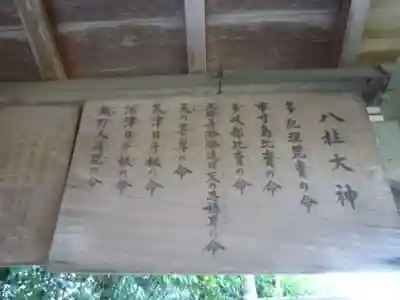 八柱大神
多紀理毘賣の命
市寸島比賣の命
多岐都比賣の命
正勝吾勝勝速日天の忍穂耳の命
天の菩卑の命
天津日子根の命
活津日子根の命
熊野久須毘の命